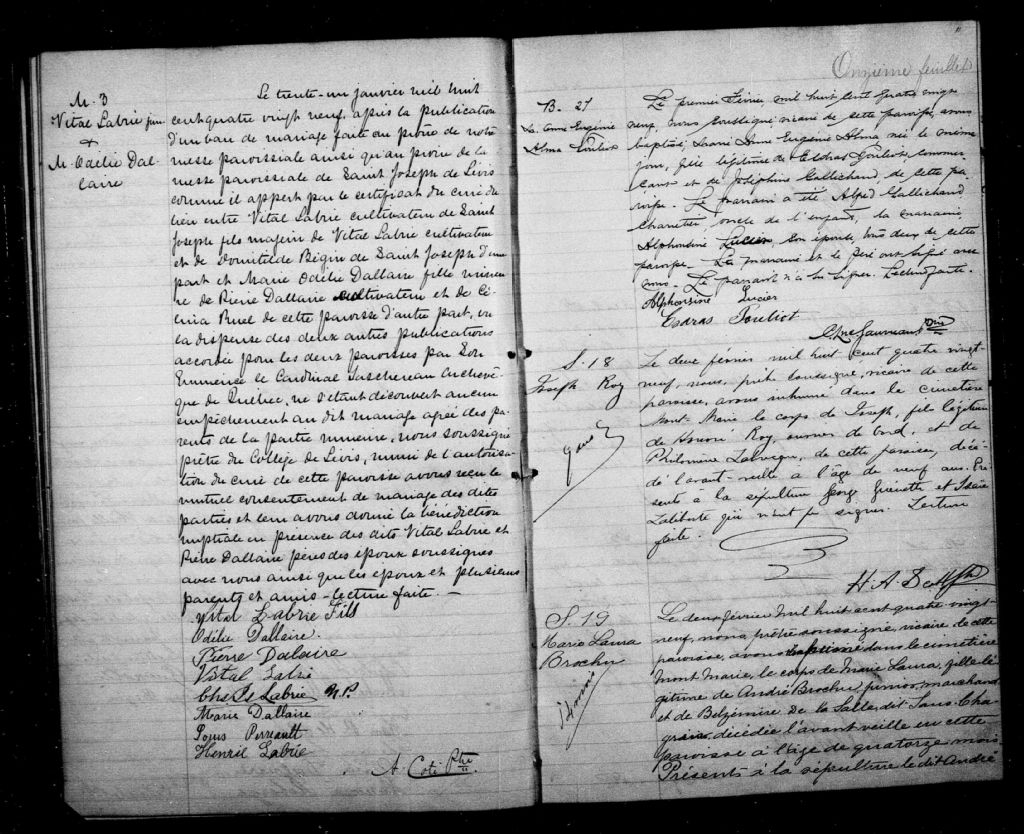 M. 3
Vital Labrie jun
+
M. Odélie Dal-
laire
Le trente-un janvier mil huit
cent quatre vingt neuf, après la publication
d'un ban de mariage faite au prône de notre
messe paroissiale ainsi qu'au prône de la
messe paroissiale de Saint Joseph de Lévis
comme il appert par le certificat du curé du
lieu entre Vital Labrie cultivateur de Saint
Joseph fils majeur de Vital Labrie cultivateur
et de Domitilde Bégin de Saint Joseph d'une
part et Marie Odélie Dallaire fille mineu
re de Pierre Dallaire cultivateur et de Cé-
lina Ruel de cette paroisse d'autre part, vu
la dispense des deux autres publications
accordée pour les deux paroisses par Son
Eminence le Cardinal Taschereau Archevê-
que de Québec, ne s'étant découvert aucun
empêchement au dit mariage agréé des pa-
rents de la partie mineure, nous soussigné
prêtre du Collège de Lévis, muni de l'autorisa-
tion du curé de cette paroisse avons reçu le
mutuel consentement de mariage des dites
parties et leur avons donné la bénédiction
nuptiale en présence des dits Vital Labrie et
Pierre Dallaire pères des époux soussignés
avec nous ainsi que les époux et plusieurs
parents et amis - lecture faite. -
Vital Labrie Fils
Odélie Dallaire.
Pierre Dalaire
Vital Labrie
Chs Labrie N.P.
Marie Dallaire
Louis Perreault
Henri Labrie
A. Coté Ptre
Onzième feuillet
B. 27
Anne Eugénie
Alma Pouliot
Le premier Février mil huit cent quatre vingt
neuf, nous soussigné vicaire de cette paroisse, avons
baptisé, Marie Anne Eugénie Alma née le même
jour, fille légitime de Esdras Pouliot, commer-
çant et de Joséphine Gallichand, de cette pa-
roisse. Le parrain a été Alfred Gallichand
charretier, oncle de l'enfant, la marraine
Alphonsine Lucier, son épouse, tous deux de cette
paroisse. La marraine et le père ont signé avec
nous. Le parrain n'a su signer. Lecture faite.
Alphonsine Lucier
Esdras Pouliot
S. 18
Joseph Roy
9 ans
Le deux février mil huit cent quatre vingt-
neuf, nous, prêtre soussigné, vicaire de cette
paroisse, avons inhumé dans le cimetière
Mont-Marie le corps de Joseph, fils légitime
de Honoré Roy, ouvrier de bord, et de
Philomène, de cette paroisse, décé-
dé l'avant-veille à l'âge de neuf ans. Pré
sents à la sépulture George Guenette et Isaïe
Laliberté qui n'ont pu signer. Lecture
faite.
H. A. Scott Ptre
S. 19
Marie Laura
Brochu
14 mois
Le deux février mil huit cent quatre vingt-
neuf, nous prêtre soussigné, vicaire de cette
paroisse, avons inhumé dans le cimetière
Mont Marie, le corps de Marie Laura, fille lé
gitime de André Brochu junior, marchand
et de Belzémire De la Salle dit Sans-Cha
grin, décédée l'avant veille en cette
paroisse à l'âge de quatorze mois
Présents à la sépulture le dit André